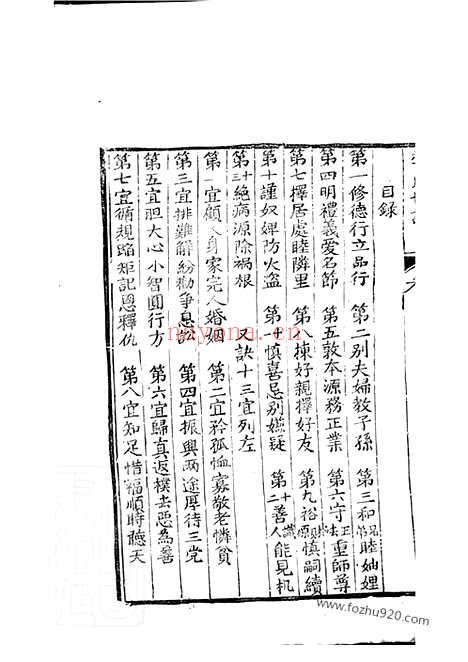 目錄
第一修德行立品行 第二別夫婦教子孫 第三和兄弟睦妯娌
第四明禮義愛名節 第五敦本源務正業 第六守正法重師尊
第七擇居處睦隣里 第八揀好親擇好友 第九裕源慎嗣續
第十謹奴婢防火盗 第十一慎喜忌別嫌疑 第十二善人能見机
第十三絕病源除禍根 訣十三宜列左
第一宜顧人身家完人婚姻 第二宜矜孤恤寡敬老憐貧
第三宜排難解紛勸爭息 第四宜振興兩途厚待三党
第五宜胆大心小智圓行方 第六宜歸真返樸去惡為善
第七宜循規蹈矩記恩釋仇 第八宜知足惜福順時聽天
nayona.cn
www.fozhu920.com